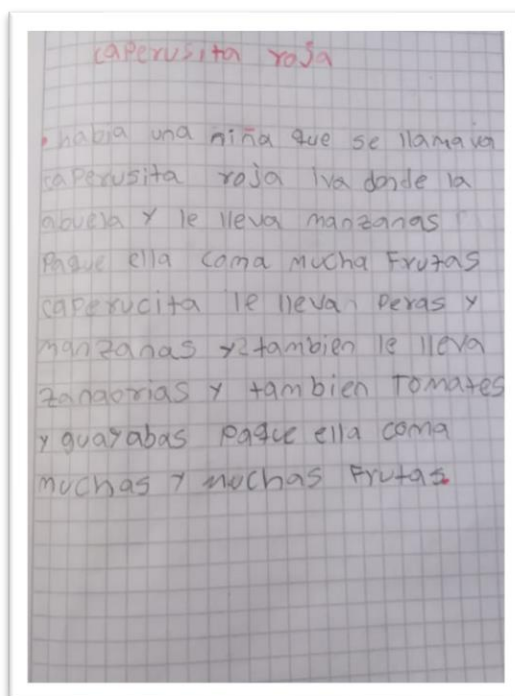 caperusita roja
habia una niña que se llamava
caperusita roja iva donde la
abuela y le lleva manzanas
Paque ella coma mucha Frutas
caperucita le llevan Peras y
manzanas y tambien le lleva
zanaorias y tambien Tomates
y guayabas paque ella coma
muchas y muchas Frutas.